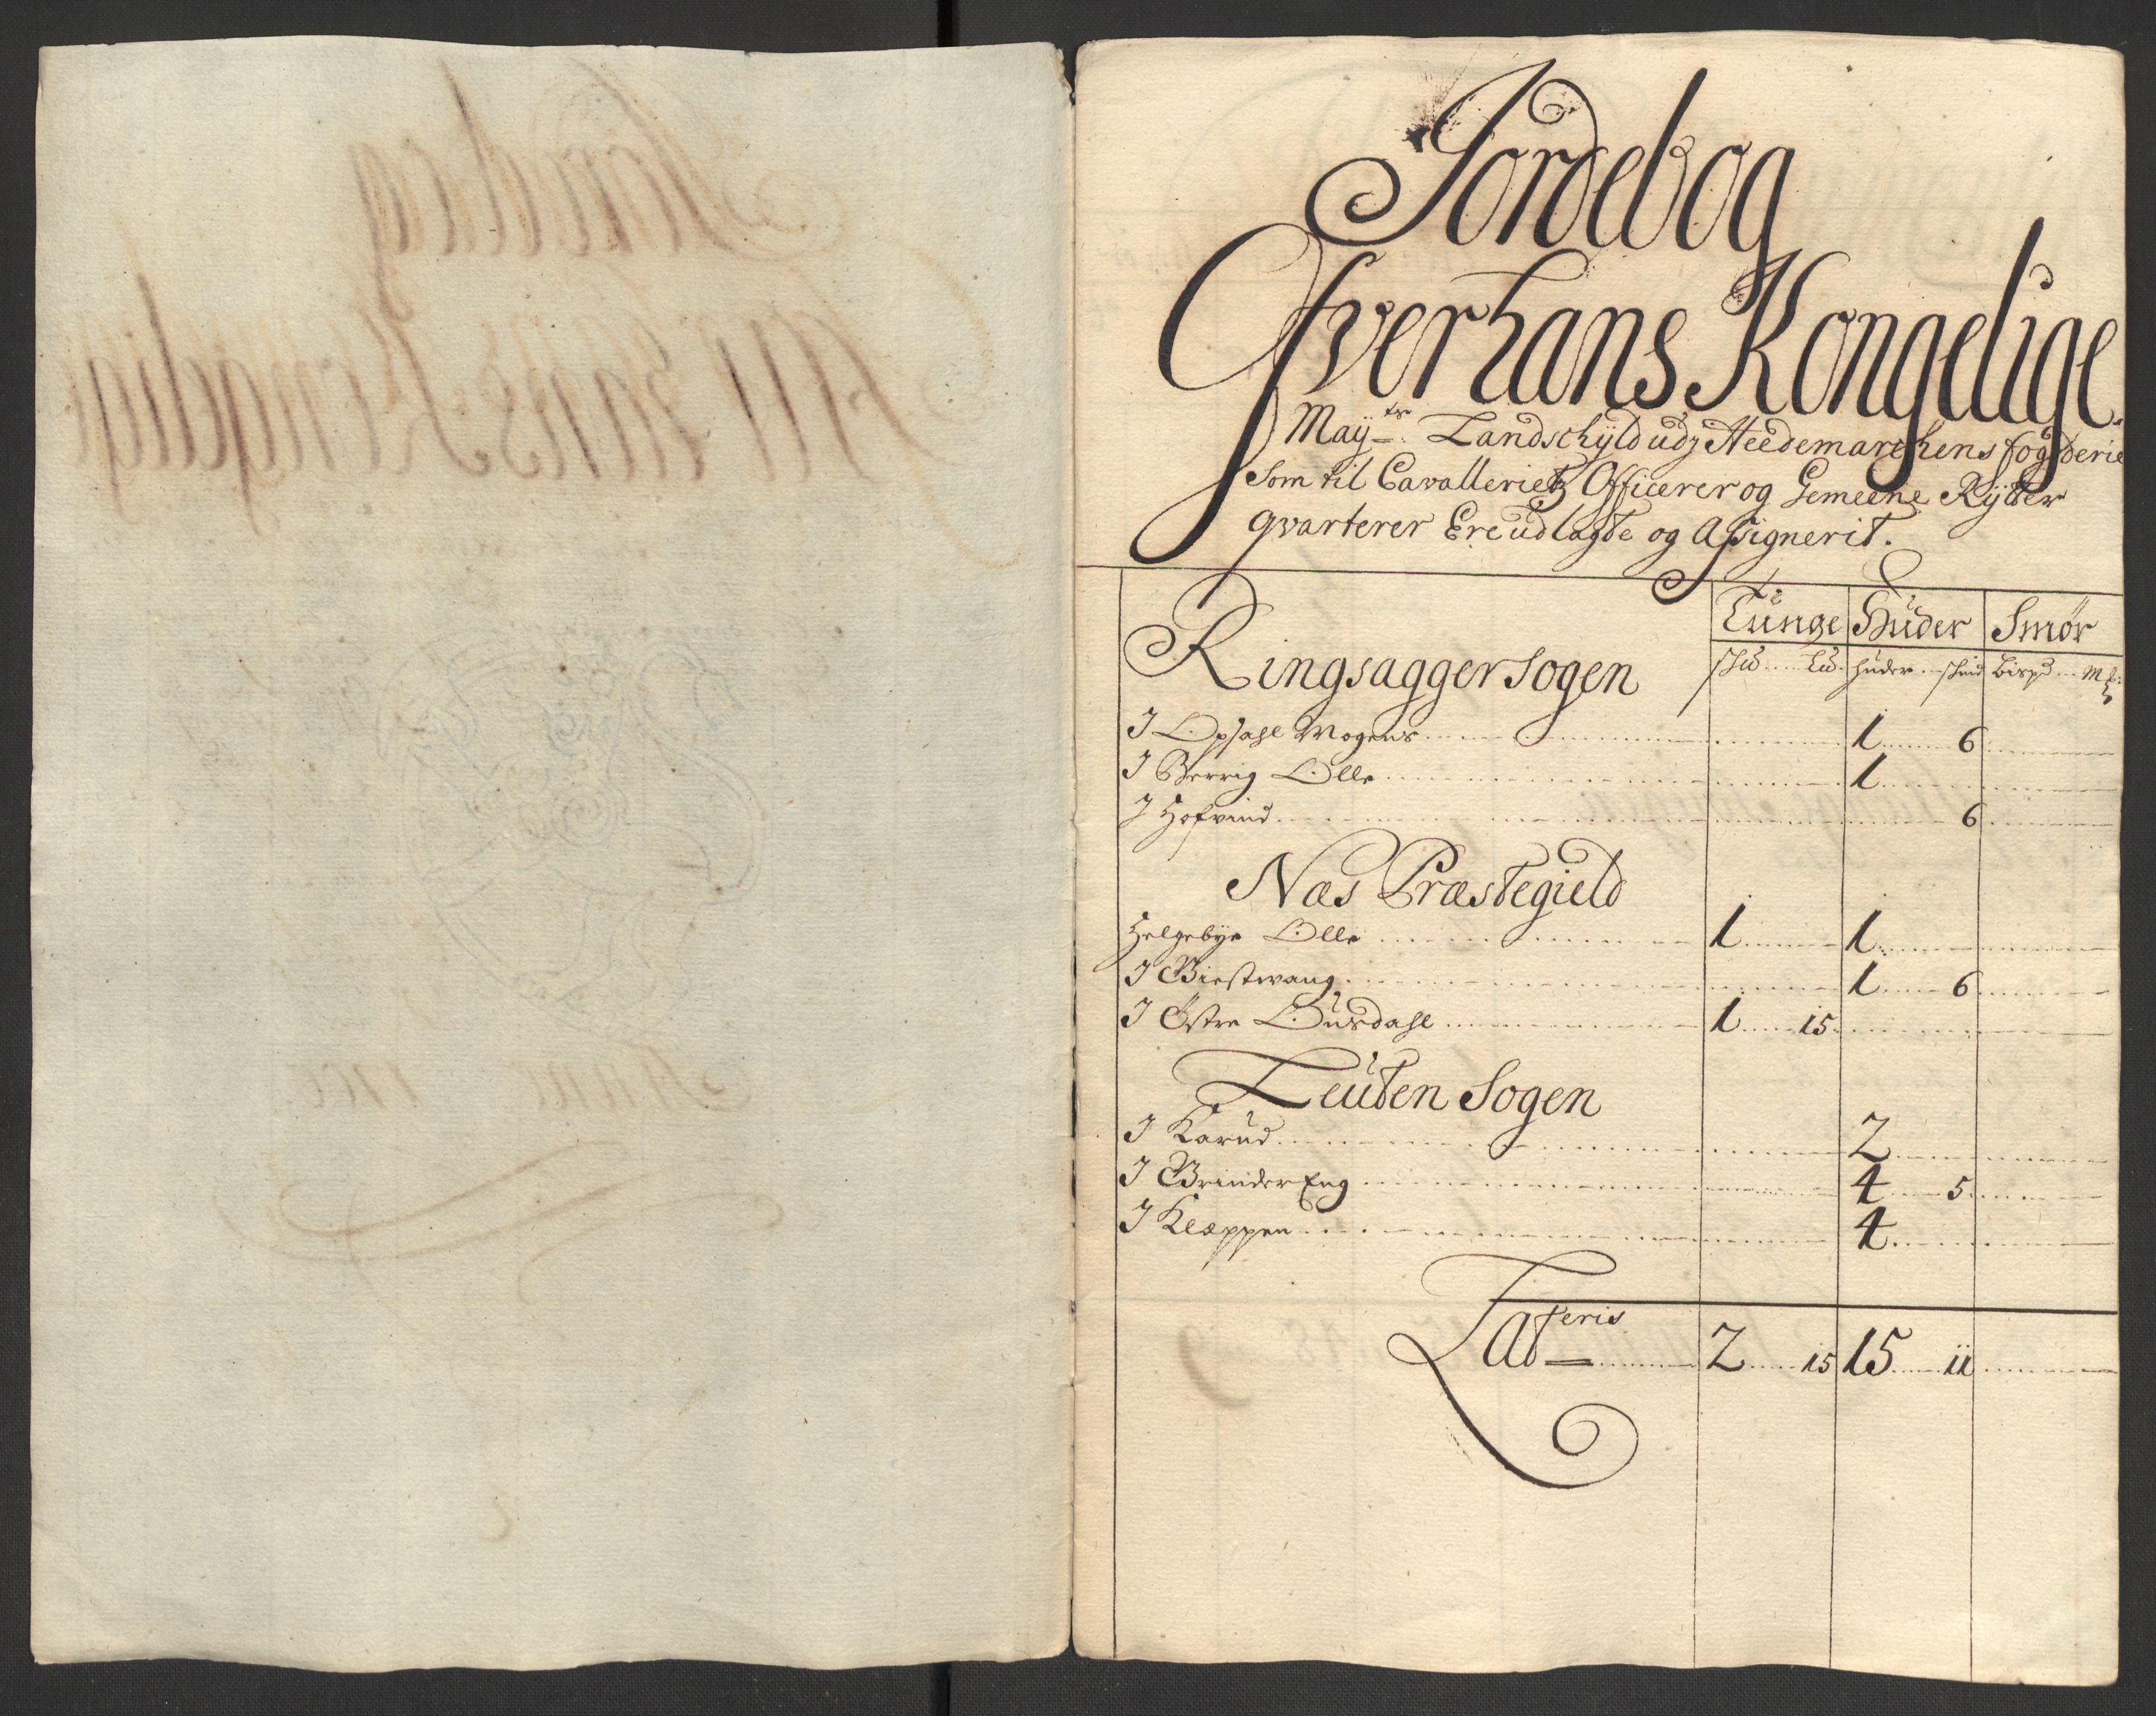 Jordebog
Ofver hans Kongelige
May:tz Landschÿld udj Heedemarchens fogderie
Som til Cavalleriets Officerer og Gemeene Rÿtter
qvarterer Ere udlagde og Assignerit.
Tünge Hüder Smør
Ringsagger Sogen
huder
I Opsahl Mogens 1 6
I Berrig Olle 1
I Hofvind 6
Næs Præstegield
Helgebye Olle 1 1
I Biestwang 1 6
I Østre Dusdahl 1 15
Leuten Sogen
I Karud 2
I Brinder Eng 4 5
I Klæppen 4
Lateris 2 15 15 11